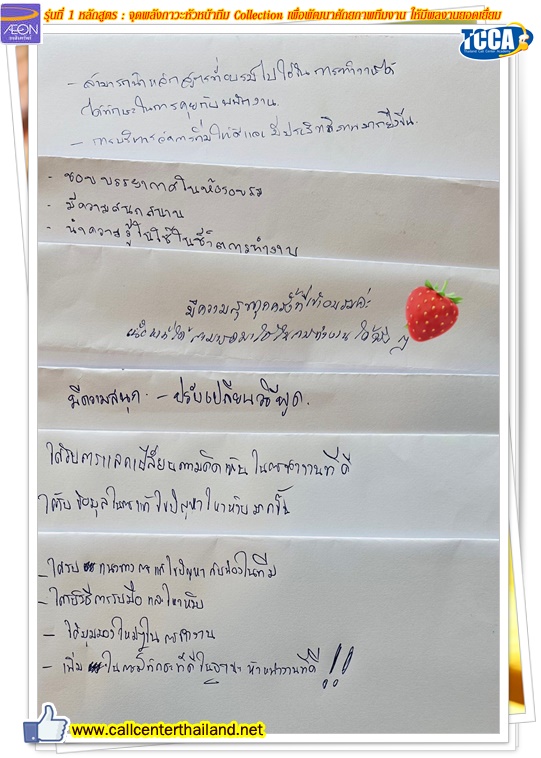 รุ่นที่ 1 หลักสูตร : จุดพลังภาวะหัวหน้าทีม Collection เพื่อพัฒนาศักยภาพทีมงาน ให้มีผลงานยอดเยี่ยม
AEON
ธนสินทรัพย์
TCCA
Thailand Call Center Academy
- สามารถนำหลักสูตรที่อบรมไปใช้ใน การทำงานได้
ได้ทักษะในการคุยกับพนักงาน.
- การบริหารจัดการทีมให้ดีและมีประสิทธิภาพมากยิ่งขึ้น.
- ชอบบรรยากาศในห้องอบรม
- มีความสนุกสนาน
- นำความรู้ไปใช้ในชีวิตการทำงาน
มีความสุขทุกครั้งที่เข้าอบรมค่ะ
มีความสนุก. - ปรับเปลี่ยนวิธีพูด.
ได้รับการแลกเปลี่ยนความคิดเห็นในการทำงานที่ดี
ได้รับข้อมูลในการแก้ไขปัญหาใหม่ๆมากขึ้น
- ได้รับ แนวทางการแก้ไขปัญหากับน้องในทีม
- ได้รู้วิธีการรับมือ
- ได้มุมมองใหม่ๆใน การทำงาน
- เพิ่ม ในการมีทักษะที่ดีในฐานะหัวหน้างานที่ดี !!
www.callcenterthailand.net